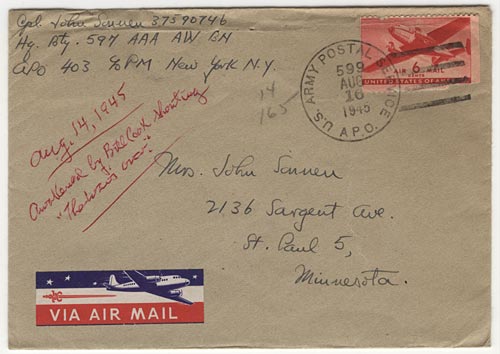 Cpl. John Sinnen 37590746
Hq. Bty. 597 AAA AW BN
APO 403 % PM New York N.Y.
U.S. ARMY POSTAL SERVICE
599
AUG
16
1945
A.P.O.
AIR 6¢ MAIL
UNITED STATES OF AMERICA
14
165
Aug. 14, 1945
Awakened by Bill Cook shouting
"The war's over."
Mrs. John Sinnen
2136 Sargent Ave.
St. Paul 5,
Minnesota.
VIA AIR MAIL